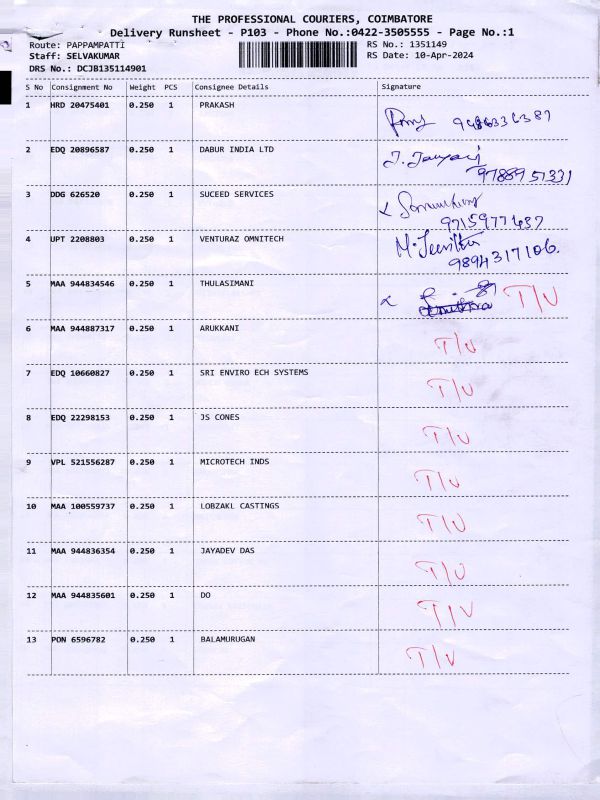 THE PROFESSIONAL COURIERS, COIMBATORE
Delivery Runsheet - P103 - Phone No.:0422-3505555 - Page No.:1
Route: PAPPAMPATTI RS No.: 1351149
Staff: SELVAKUMAR RS Date: 10-Apr-2024
DRS No.: DCJB135114901
S No Consignment No Weight PCS Consignee Details Signature
1 HRD 20475401 0.250 1 PRAKASH
2 EDQ 20896587 0.250 1 DABUR INDIA LTD J. Jayari
9788951331
3 DDG 626520 0.250 1 SUCEED SERVICES
9715977437
4 UPT 2208803 0.250 1 VENTURAZ OMNITECH M. Jeevitha
9894317106.
5 MAA 944834546 0.250 1 THULASIMANI T/V
6 MAA 944887317 0.250 1 ARUKKANI T/V
7 EDQ 10660827 0.250 1 SRI ENVIRO ECH SYSTEMS T/V
8 EDQ 22298153 0.250 1 JS CONES T/V
9 VPL 521556287 0.250 1 MICROTECH INDS T/V
10 MAA 100559737 0.250 1 LOBZAKL CASTINGS T/V
11 MAA 944836354 0.250 1 JAYADEV DAS T/V
12 MAA 944835601 0.250 1 DO T/V
13 PON 6596782 0.250 1 BALAMURUGAN T/V